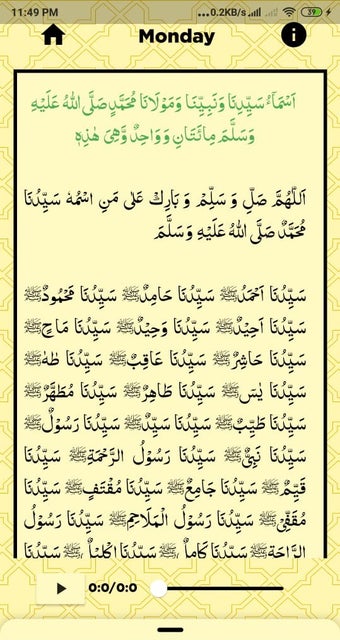 11:49 PM ...0.2KB/s 39
Monday
اَسْمَآءُ سَيِّدِنَا وَنَبِيِّنَا وَمَوْلَانَا مُحَمَّدٍ صَلَّى اللهُ عَلَيْهِ
وَسَلَّمَ مِائَتَانِ وَوَاحِدٌ وَّهِيَ هٰذِهٖ
اَللّٰهُمَّ صَلِّ وَ سَلِّمْ وَ بَارِكْ عَلٰى مَنِ اسْمُهٗ سَيِّدُنَا
مُحَمَّدٌ صَلَّى اللهُ عَلَيْهِ وَ سَلَّمَ
سَيِّدُنَا اَحْمَدُ ﷺ سَيِّدُنَا حَامِدٌ ﷺ سَيِّدُنَا مَحْمُودٌ ﷺ
سَيِّدُنَا اَحِيْدٌ ﷺ سَيِّدُنَا وَحِيْدٌ ﷺ سَيِّدُنَا مَاحٍ ﷺ
سَيِّدُنَا حَاشِرٌ ﷺ سَيِّدُنَا عَاقِبٌ ﷺ سَيِّدُنَا طٰهٰ ﷺ
سَيِّدُنَا يٰسٓ ﷺ سَيِّدُنَا طَاهِرٌ ﷺ سَيِّدُنَا مُطَهَّرٌ ﷺ
سَيِّدُنَا طَيِّبٌ ﷺ سَيِّدُنَا سَيِّدٌ ﷺ سَيِّدُنَا رَسُوْلٌ ﷺ
سَيِّدُنَا نَبِيٌّ ﷺ سَيِّدُنَا رَسُوْلُ الرَّحْمَةِ ﷺ سَيِّدُنَا
قَيِّمٌ ﷺ سَيِّدُنَا جَامِعٌ ﷺ سَيِّدُنَا مُقْتَفٍ ﷺ سَيِّدُنَا
مُقَفّٰى ﷺ سَيِّدُنَا رَسُوْلُ الْمَلَاحِمِ ﷺ سَيِّدُنَا رَسُوْلُ
الرَّاحَةِ ﷺ سَيِّدُنَا كَامِلٌ ﷺ سَيِّدُنَا اِكْلِيْلٌ ﷺ سَيِّدُنَا
0:0/0:0